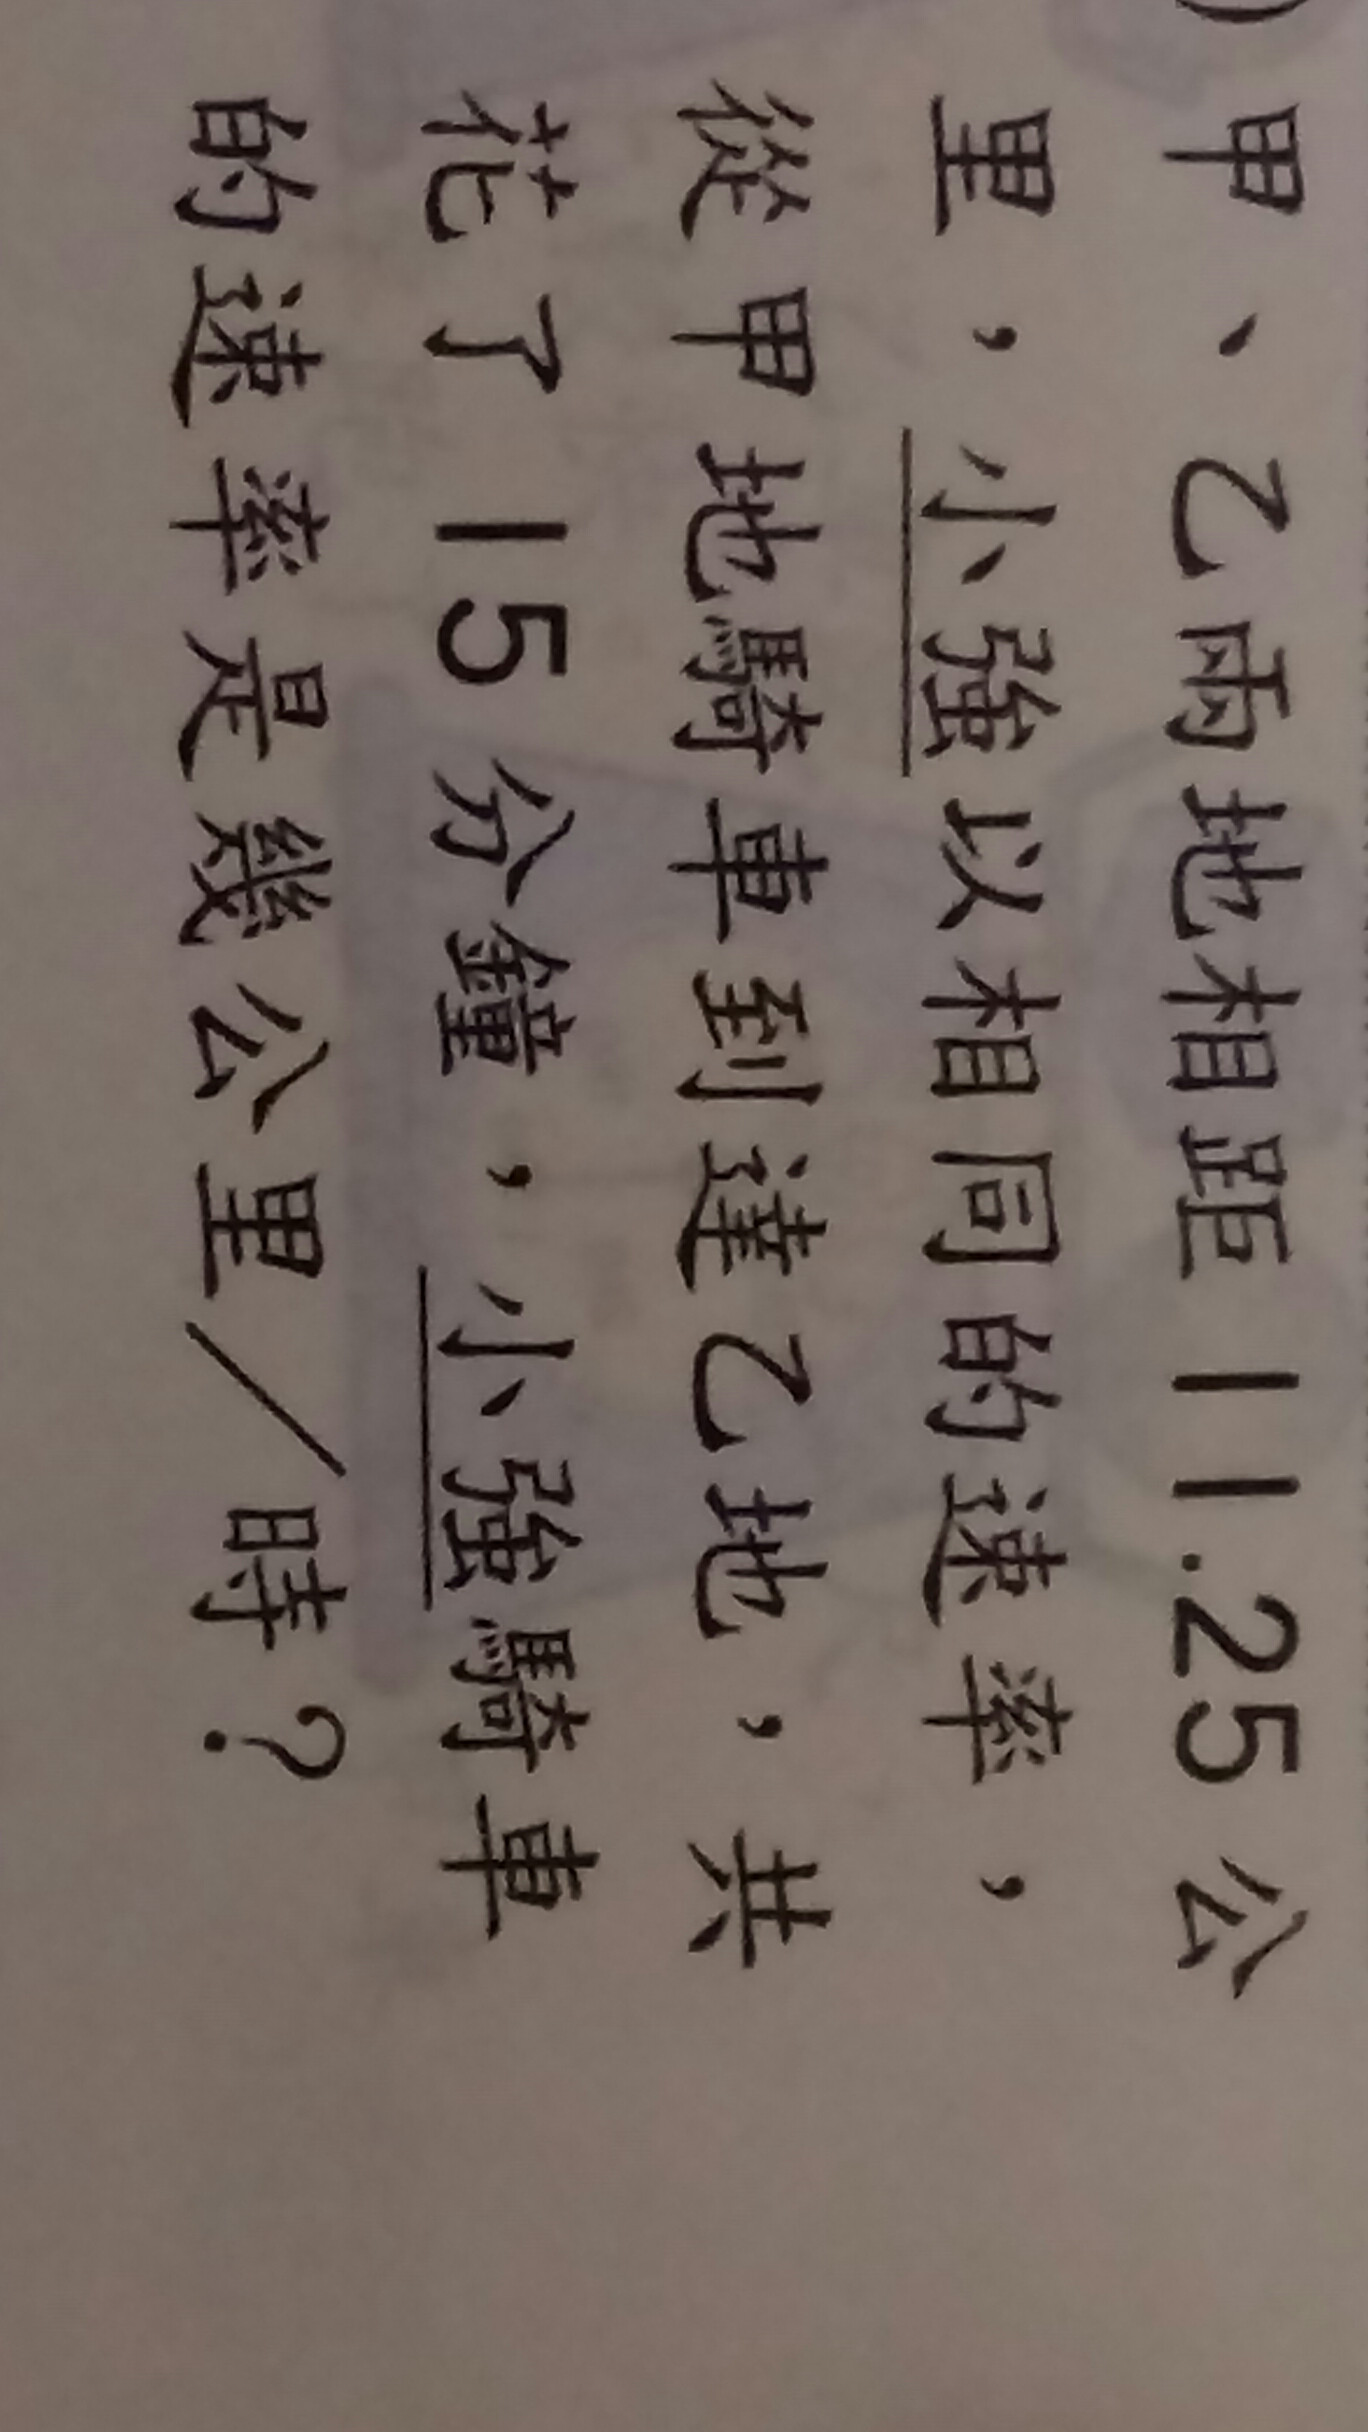 甲、乙兩地相距 11.25 公
里，小強以相同的速率，
從甲地騎車到達乙地，共
花了 15 分鐘，小強騎車
的速率是幾公里／時？